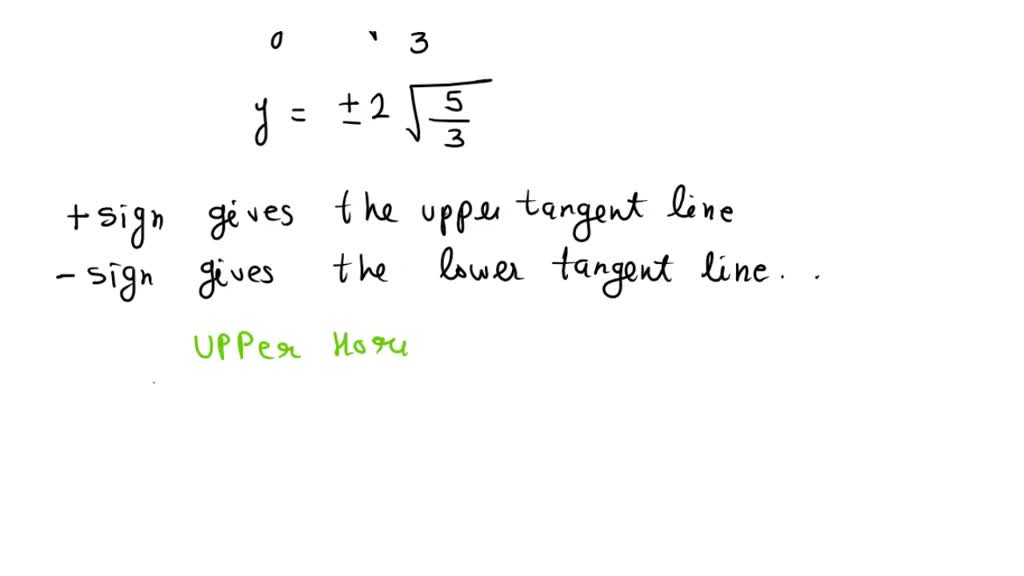 3
y = ± 2 √(5/3)
+ sign gives the upper tangent line
- sign gives the lower tangent line . .
UPPer Hori